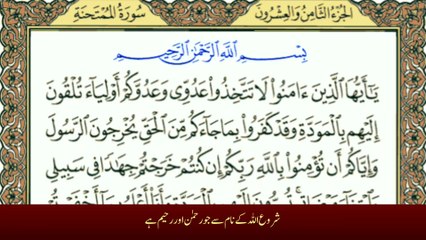 سُورَةُ المُمْتَحنَةِ
الجُزْءُ الثَّامِنُ وَالعِشْرُونَ
بِسْمِ اللَّهِ الرَّحْمَٰنِ الرَّحِيمِ
يَٰٓأَيُّهَا ٱلَّذِينَ ءَامَنُوا۟ لَا تَتَّخِذُوا۟ عَدُوِّى وَعَدُوَّكُمْ أَوْلِيَآءَ تُلْقُونَ
إِلَيْهِم بِٱلْمَوَدَّةِ وَقَدْ كَفَرُوا۟ بِمَا جَآءَكُم مِّنَ ٱلْحَقِّ يُخْرِجُونَ ٱلرَّسُولَ
وَإِيَّاكُمْ أَن تُؤْمِنُوا۟ بِٱللَّهِ رَبِّكُمْ إِن كُنتُمْ خَرَجْتُمْ جِهَٰدًا فِى سَبِيلِى
شروع اللہ کے نام سے جو رحمٰن اور رحیم ہے